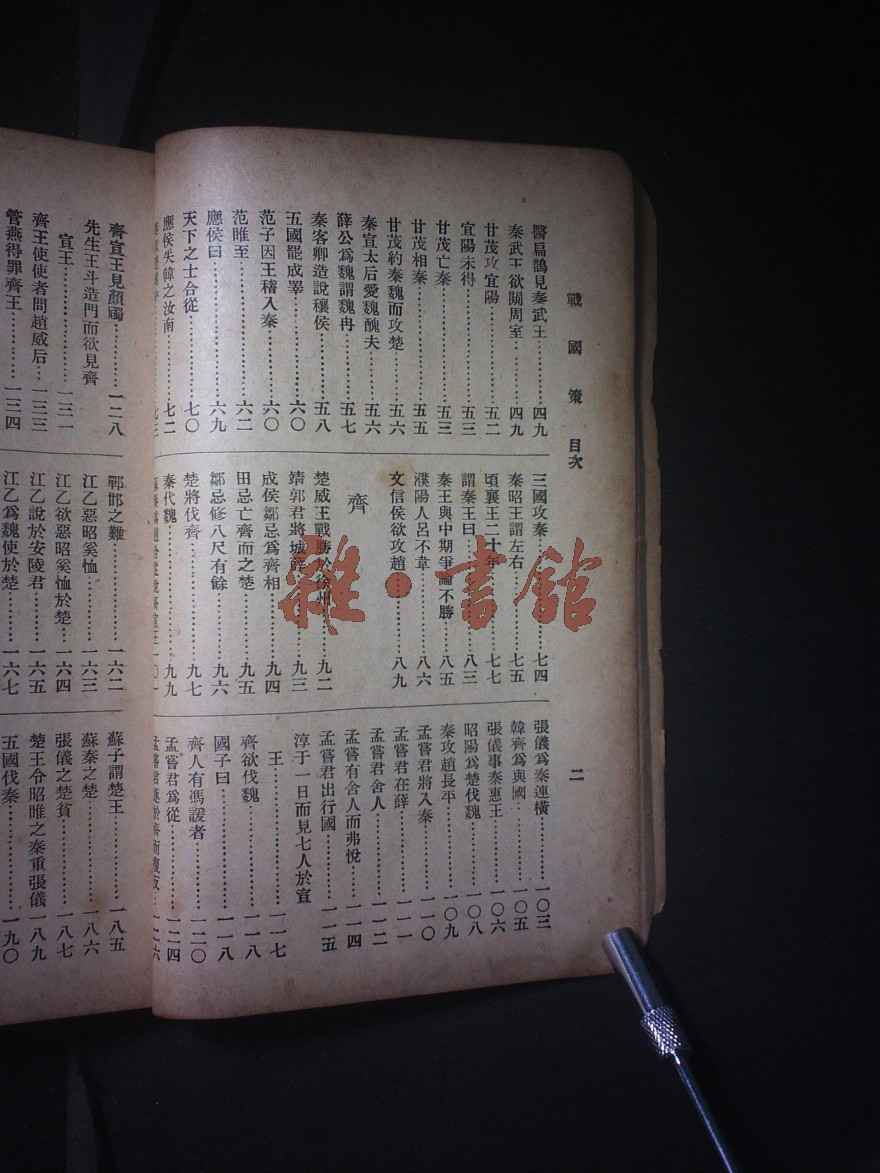 戰國策 目次
二
醫扁鵲見秦武王⋯⋯⋯四九
秦武王欲闚周室⋯⋯⋯四九
甘茂攻宜陽⋯⋯⋯五二
宜陽未得⋯⋯⋯五三
甘茂亡秦⋯⋯⋯五三
甘茂相秦⋯⋯⋯五五
甘茂約秦魏而攻楚⋯⋯⋯五六
秦宣太后愛魏醜夫⋯⋯⋯五六
薛公爲魏謂魏冉⋯⋯⋯五七
秦客卿造說穰侯⋯⋯⋯五八
五國罷成睪⋯⋯⋯六〇
范子因王稽入秦⋯⋯⋯六〇
范睢至⋯⋯⋯六二
應侯曰⋯⋯⋯六九
天下之士合從⋯⋯⋯七〇
應侯失韓之汝南⋯⋯⋯七二
七三
三國攻秦⋯⋯⋯七四
秦昭王謂左右⋯⋯⋯七五
頃襄王二十年⋯⋯⋯七七
謂秦王曰⋯⋯⋯八三
秦王與中期爭論不勝⋯⋯⋯八五
濮陽人呂不韋⋯⋯⋯八六
文信侯欲攻趙⋯⋯⋯八九
齊
楚威王戰勝於徐州⋯⋯⋯九二
靖郭君將城薛⋯⋯⋯九三
成侯鄒忌爲齊相⋯⋯⋯九四
田忌亡齊而之楚⋯⋯⋯九五
鄒忌修八尺有餘⋯⋯⋯九六
楚將伐齊⋯⋯⋯九七
秦伐魏⋯⋯⋯九九
蘇秦爲趙合從說齊宣王⋯一〇一
張儀爲秦連橫⋯⋯⋯一〇三
韓齊爲與國⋯⋯⋯一〇五
張儀事秦惠王⋯⋯⋯一〇六
昭陽爲楚伐魏⋯⋯⋯一〇八
秦攻趙長平⋯⋯⋯一〇九
孟嘗君將入秦⋯⋯⋯一一〇
孟嘗君在薛⋯⋯⋯一一一
孟嘗君舍人⋯⋯⋯一一二
孟嘗有舍人而弗悅⋯⋯⋯一一四
孟嘗君出行國⋯⋯⋯一一五
淳于一日而見七人於宣
王⋯⋯⋯一一七
齊欲伐魏⋯⋯⋯一一八
國子曰⋯⋯⋯一一八
齊人有馮諼者⋯⋯⋯一二〇
孟嘗君爲從⋯⋯⋯一二四
孟嘗君逐於齊而復反⋯⋯一二六
齊宣王見顏斶⋯⋯⋯一二八
先生王斗造門而欲見齊
宣王⋯⋯⋯一三一
齊王使使者問趙威后⋯⋯⋯一三三
管燕得罪齊王⋯⋯⋯一三四
邯鄲之難⋯⋯⋯一六二
江乙惡昭奚恤⋯⋯⋯一六三
江乙欲惡昭奚恤於楚⋯⋯⋯一六四
江乙說於安陵君⋯⋯⋯一六五
江乙爲魏使於楚⋯⋯⋯一六七
蘇子謂楚王⋯⋯⋯一八五
蘇秦之楚⋯⋯⋯一八六
張儀之楚貧⋯⋯⋯一八七
楚王令昭睢之秦重張儀⋯⋯⋯一八九
五國伐秦⋯⋯⋯一九〇
雜·書舘